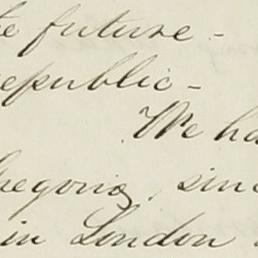 te future -
epublic -
We ha
begoria, sinc
in London